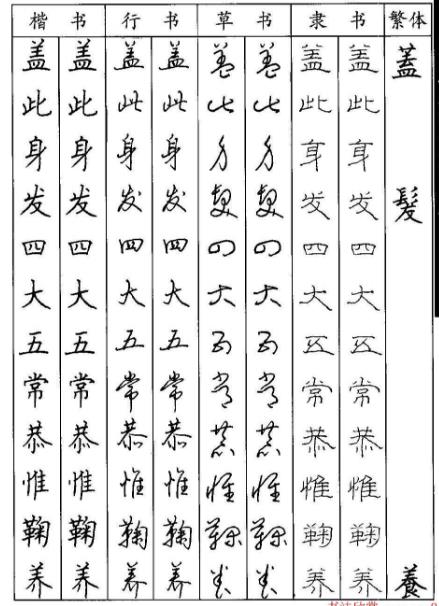 楷 书 行 书 草 书 隶 书 繁体
盖 盖 盖 盖 盖 盖 盖 盖 蓋
此 此 此 此 此 此 此 此
身 身 身 身 身 身 身 身
发 发 发 发 发 发 发 发 髮
四 四 四 四 四 四 四 四
大 大 大 大 大 大 大 大
五 五 五 五 五 五 五 五
常 常 常 常 常 常 常 常
恭 恭 恭 恭 恭 恭 恭 恭
惟 惟 惟 惟 惟 惟 惟 惟
鞠 鞠 鞠 鞠 鞠 鞠 鞠 鞠
养 养 养 养 养 养 养 养 養